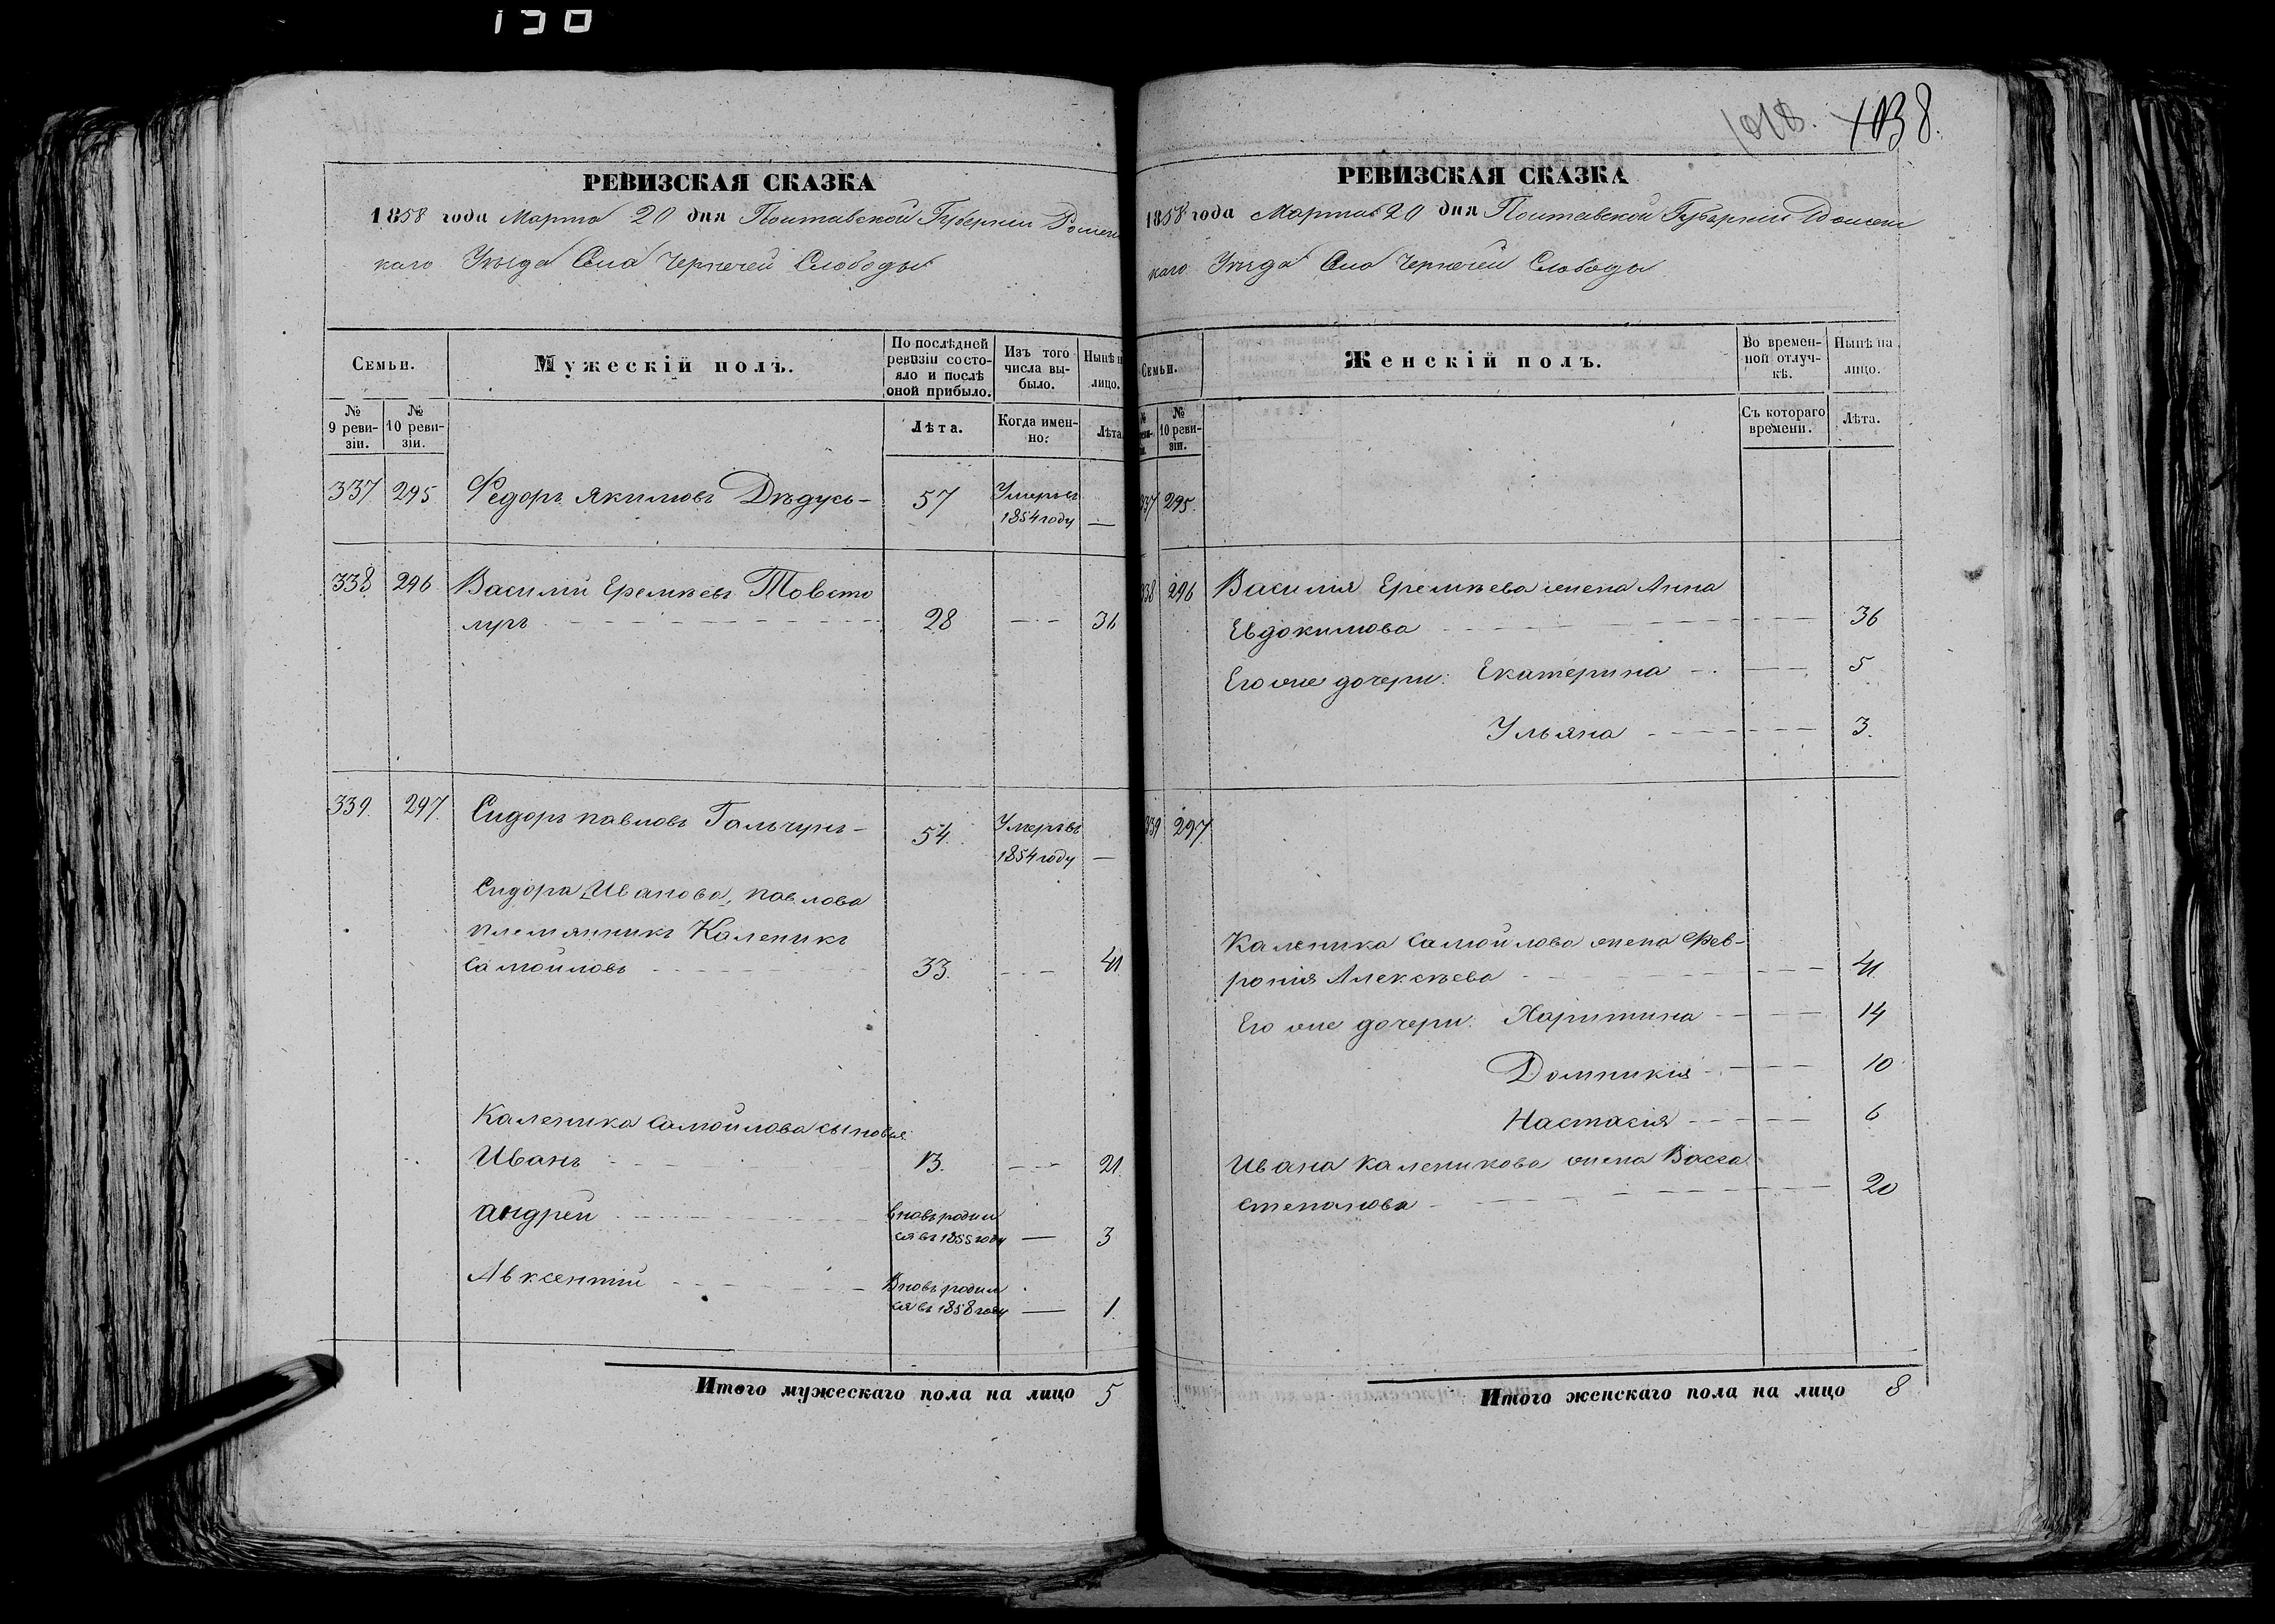 130
РЕВИЗСКАЯ СКАЗКА
1858 года Марта 20 дня Полтавской Губерніи Ромен
каго Уѣзда Села Чернечей Слободы
Семьи.
Мужескій полъ.
По послѣдней ревизіи состояло и послѣ оной прибыло.
Изъ того числа выбыло.
Нынѣ н
лицо.
№ 9 ревизіи.
№ 10 ревизіи.
Лѣта.
Когда именно.
Лѣта
337 295 Федоръ Якимовъ Дѣдусь - 57 Умеръ въ
1854 году —
338 296 Василий Еремѣевъ Товсто
лугъ 28 — 36
339. 297. Сидоръ павловъ Гальчунъ - 54. Умеръ въ
1854 году —
Сидора Иванова, павлова
племянникъ Каленикъ
Самойловъ 33. — 41
Каленика Самойлова сыновья
Иванъ 13. — 21.
андрей вновь родил
ся въ 1855 году — 3
Авксентий Вновь родил
ся въ 1858 году — 1.
Итого мужескаго пола на лицо 5
1018. 1138.
РЕВИЗСКАЯ СКАЗКА
1858 года Марта 20 дня Полтавской Губерніи Ромен
каго Уѣзда Села Чернечей Слободы
Семьи.
Женскій полъ.
Во временной отлучкѣ.
Нынѣ на лицо.
№ 10 ревизіи.
Съ котораго времени.
Лѣта.
337 295.
338 296 Василія Еремѣева жена Анна
Евдокимова 36
Его же дочери: Екатерина — 5
Ульяна 3.
339 297.
Каленика Самойлова жена Фев-
ронія Алексѣева 41
Его же дочери: Харитина 14
Домникія 10
Настасия 6
Ивана Каленикова жена Васса
Степанова 20
Итого женскаго пола на лицо 8